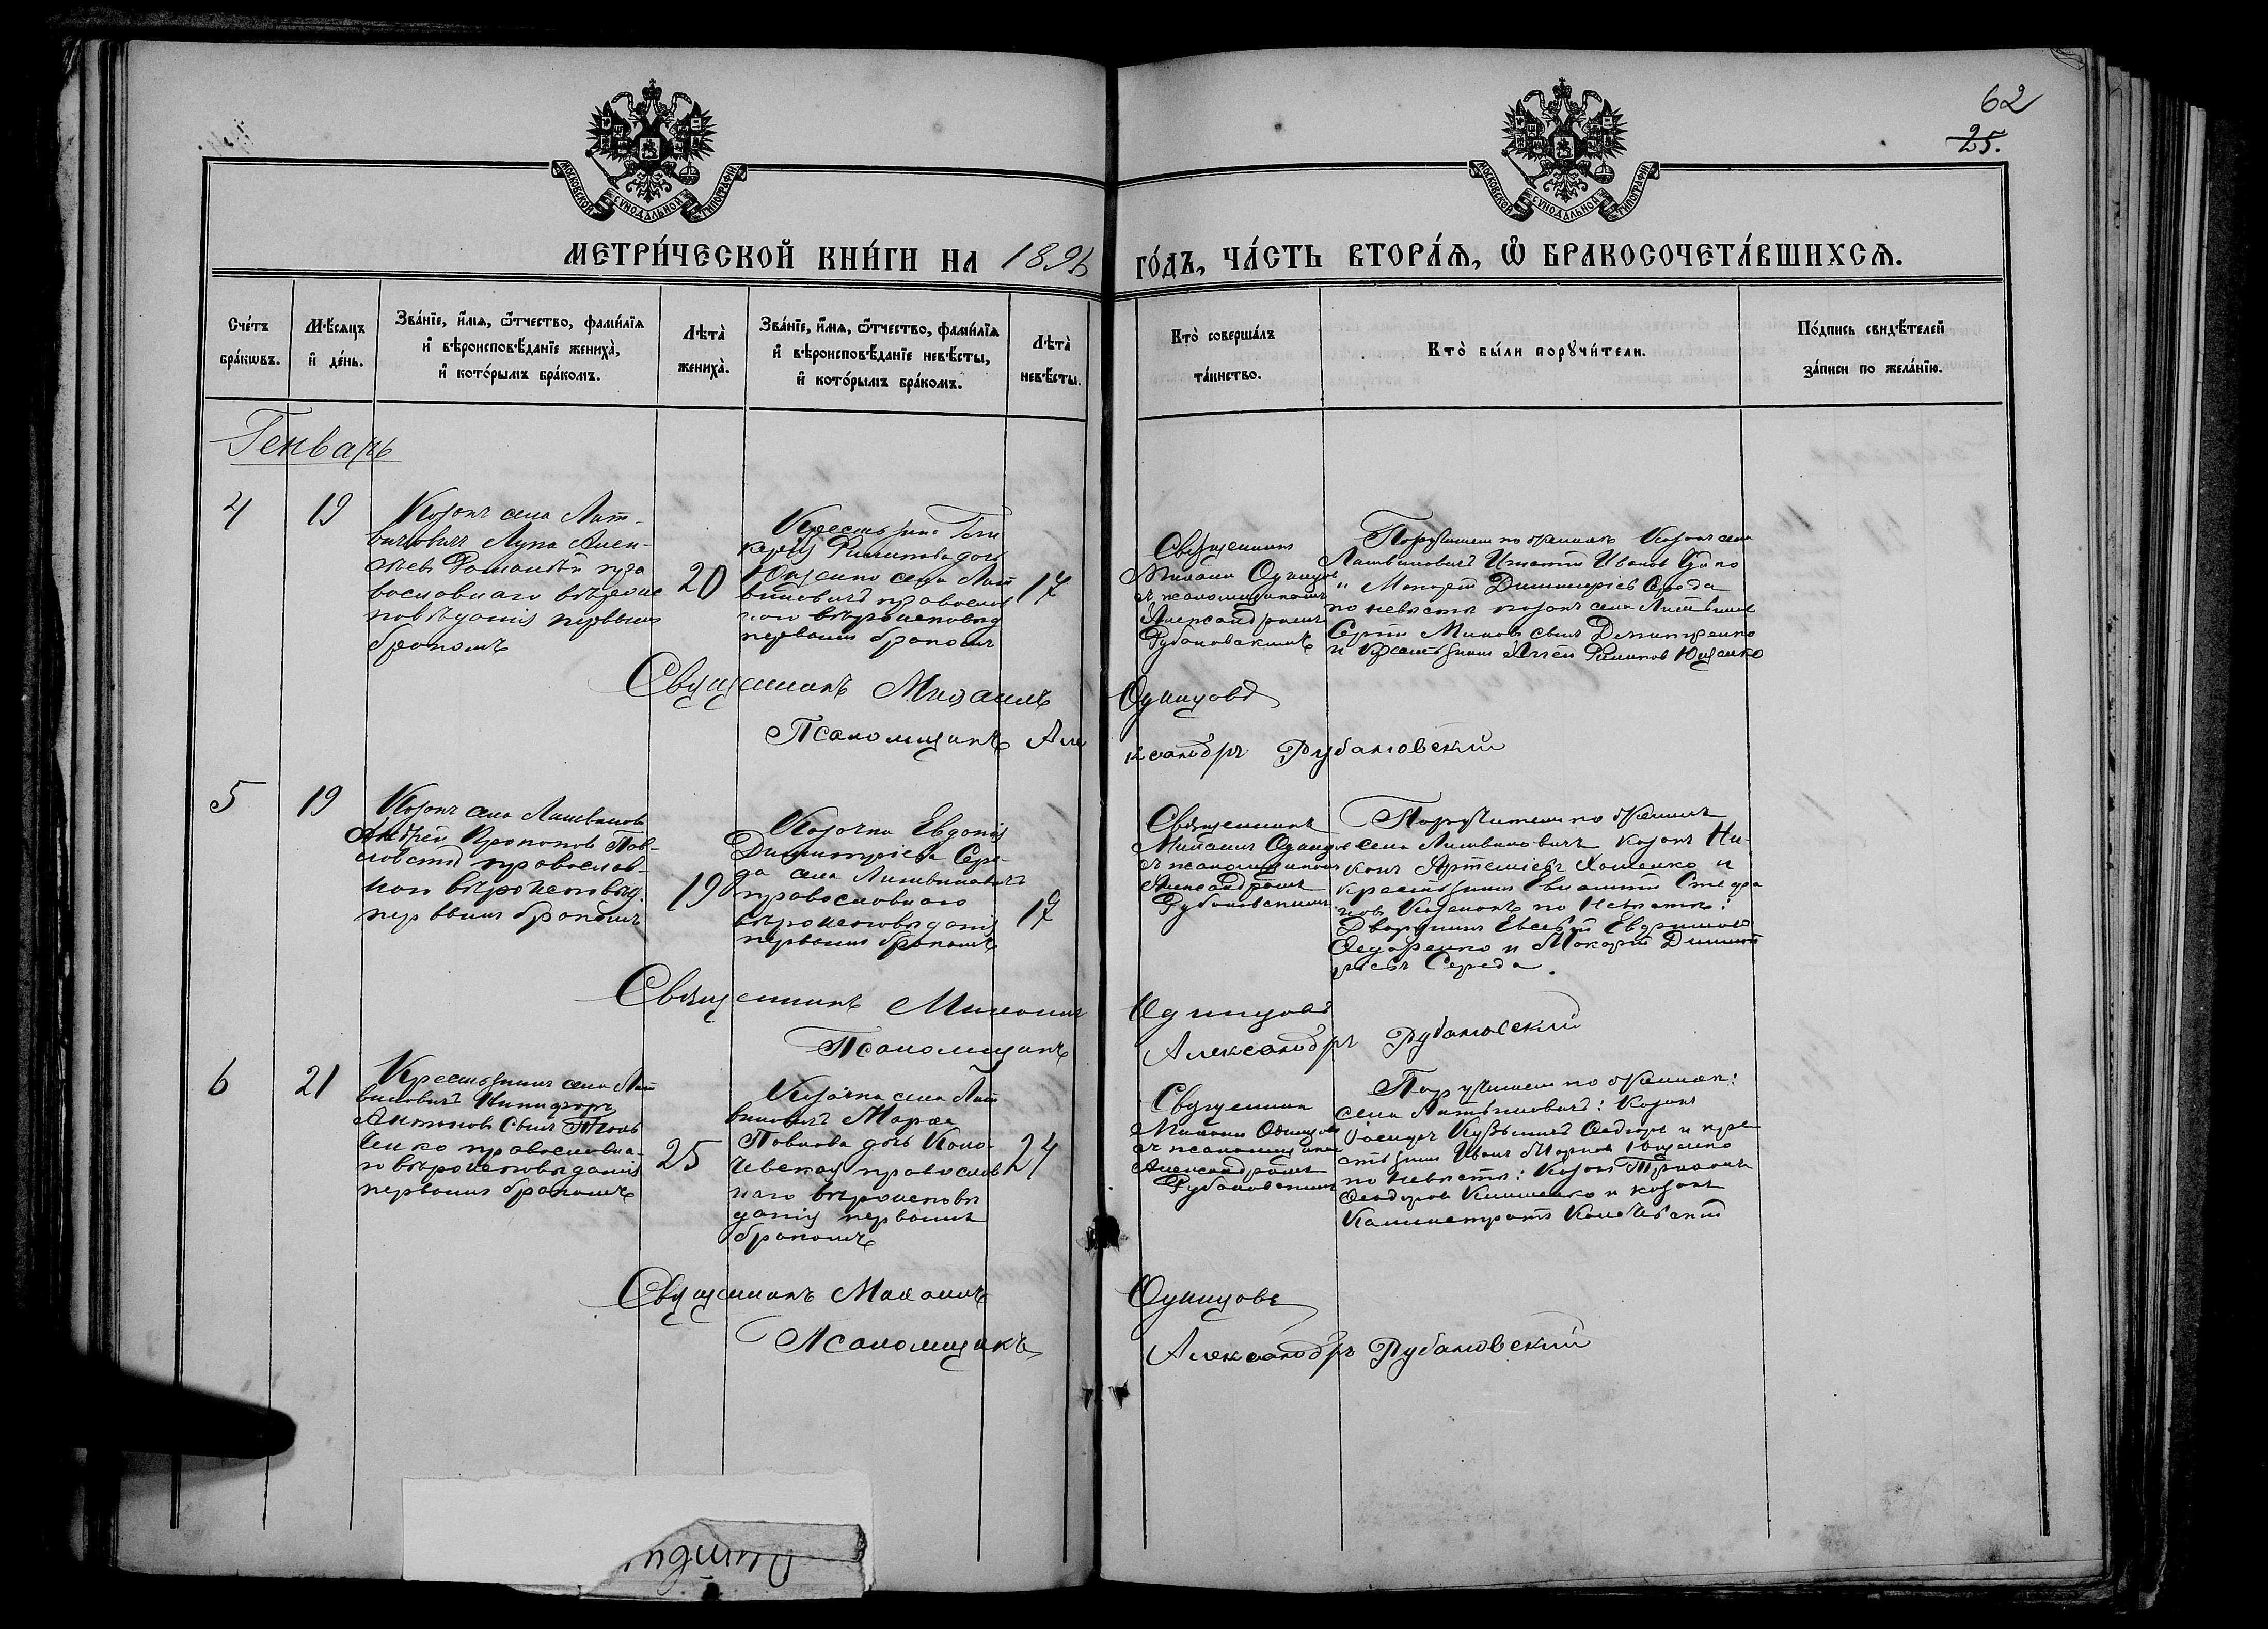 62
25.
МОСКОВСКОЙ СѴНОДАЛЬНОЙ ТИПОГРАФІИ
МОСКОВСКОЙ СѴНОДАЛЬНОЙ ТИПОГРАФІИ
МЕТРИ́ЧЕСКОЙ КНИ́ГИ НА 1896 ГО́ДЪ, ЧА́СТЬ ВТОРА́Ѧ, Ѽ БРАКОСОЧЕТА́ВШИХСѦ.
Сче́тъ
бра́кѡвъ.
Мѣ́сѧцъ
и҆ де́нь.
Зва́нїе, и҆́мѧ, ѻ҆́тчество, фамѝлїѧ
и҆ вѣроисповѣ́данїе жениха̀,
и҆ кото́рымъ бра́комъ.
Лѣта̀
жениха̀.
Зва́нїе, и҆́мѧ, ѻ҆́тчество, фамѝлїѧ
и҆ вѣроисповѣ́данїе невѣ́сты,
и҆ кото́рымъ бра́комъ.
Лѣта̀
невѣ́сты.
Кто̀ соверша́лъ
та́инство.
Кто̀ бы́ли порꙋчи́тели.
По́дпись свидѣ́телей
за́писи по жела́нїю.
Генварь
4
19
Козакъ села Лит-
виновичъ Лупа Алек-
сѣевъ пра
вославнаго вѣроис
повѣданія первымъ
бракомъ
20
Крестьянка
Филипова дочь
Ющенко села Лит
виновичъ православ
наго вѣроисповѣд
первымъ бракомъ
17
Священникъ
Михаилъ Одинцовъ
съ псаломщикомъ
Александромъ
Рубановскимъ
Поручители по женихѣ Козаки села
Литвиновичъ Игнатій Ивановъ
и Макарій Димитріевъ Середа
по невѣстѣ козакъ села Литвинов
Сергій сынъ Дмитренко
и Крестьянинъ Филиповъ Ющенко
Священникъ Михаилъ Одинцовъ
Псаломщикъ Александръ Рубановскій
5
19
Козакъ села Литвинов
Андрей Прокоповъ Пав-
ловскій православ-
наго вѣроисповѣд.
первымъ бракомъ
19
Козачка Евдокія
Димитріева Сере-
да села Литвиновичъ
православнаго
вѣроисповѣданія
первымъ бракомъ
17
Священникъ
Михаилъ Одинцовъ
съ псаломщикомъ
Александромъ
Рубановскимъ
Поручители по женихѣ
села Литвиновичъ козакъ Ни-
конъ Артеміевъ Хоменко и
крестьянинъ Евлампій Стефа
новъ по Невѣстѣ:
Дворянинъ Евсевій
Федоренко и Макарій Димит
ріевъ Середа.
Священникъ Михаилъ Одинцовъ
Псаломщикъ Александръ Рубановскій
6
21
Крестьянинъ села Лит
виновичъ Никифоръ
Антоновъ сынъ
православна-
го вѣроисповѣданія
первымъ бракомъ
25
Козачка села Лит
виновичъ Марѳа
Павлова дочь Кола-
чевская православ
наго вѣроисповѣ
данія первымъ
бракомъ
24
Священникъ
Михаилъ Одинцовъ
съ псаломщикомъ
Александромъ
Рубановскимъ
Поручители по женихѣ:
села Литвиновичъ: Козакъ
и кре
стьянинъ Иванъ Марковъ Ющенко
по невѣстѣ: Козакъ Трифонъ
Ѳеодоровъ Клименко и козакъ
Каллистратъ
Священникъ Михаилъ Одинцовъ
Псаломщикъ Александръ Рубановскій